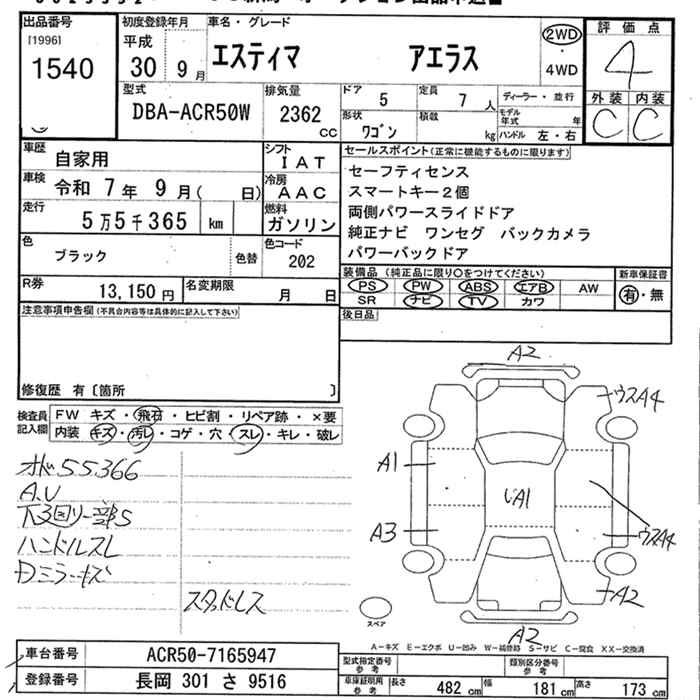 出品番号
[1996]
1540
初度登録年月
平成
30 9月
車名・グレード
エスティマ アエラス
2WD
・
4WD
評価点
4
外装 内装
C C
型式
DBA-ACR50W
排気量
2362
CC
ドア 5
定員 7人
ディーラー・並行
形状 ワゴン
積載 kg
モデル年式 年
ハンドル 左・右
車歴
自家用
シフト
IAT
車検
令和 7年 9月( 日)
冷房
AAC
走行
5万5千365 km
燃料
ガソリン
色
ブラック
色替
色コード
202
R券
13,150円
名変期限
月 日
セールスポイント(正常に機能するものに限ります)
セーフティセンス
スマートキー2個
両側パワースライドドア
純正ナビ ワンセグ バックカメラ
パワーバックドア
装備品(純正品に限り○をつけてください)
新車保証書
PS PW ABS エアB AW
SR ナビ TV カワ
有・無
後日品
注意事項申告欄(不具合内容等は具体的に記入して下さい)
修復歴 有〔箇所 〕
検査員
記入欄
FW キズ・飛石・ヒビ割・リペア跡・×要
内装 キズ・汚レ・コゲ・穴・スレ・キレ・破レ
オド55366
A.U
下3回リ一部S
ハンドルスレ
Dミラーキズ
スタッドレス
A2
ウスA4
A1
いA1
A3
ウスA4
A2
A2
スペア
A-キズ E-エクボ U-凹み W-補修跡 S-サビ C-腐食 XX-交換済
車台番号
ACR50-7165947
登録番号
長岡 301 さ 9516
型式指定番号
参考
類別区分番号
参考
車庫証明用
参考
長さ 482 cm
幅 181 cm
高さ 173 cm